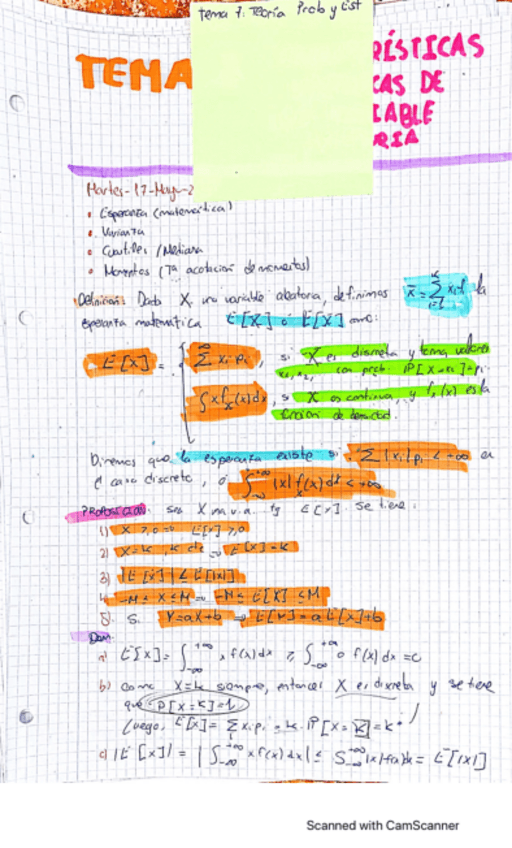 Tema 7: Teoría Prob y Est
TEMA
RÍSTICAS
CAS DE
IABLE
RIA
Martes-17-Mayo-2
• Esperanza (matemática)
• Varianza
• Cuartiles / Mediana
• Momentos (Tª acotación de momentos)
Definición: Dada X una variable aleatoria, definimos x̄ = Σ xᵢfᵢ la
esperanza matemática E[X] ó E[X] como:
E[X] = Σ xᵢ pᵢ, si X es discreta y toma valores
x₁, x₂, con prob. P[X=xᵢ]=pᵢ
∫ x fₓ(x)dx, si X es continua, y fₓ(x) es la
función de densidad.
Diremos que la esperanza existe si Σ|xᵢ|pᵢ < +∞ en
el caso discreto, o ∫ |x| f(x)dx < +∞
PROPOSICIÓN: sea X una v.a. tq E[X]. Se tiene:
1) X ≥ 0 ⇒ E[X] ≥ 0
2) X=k, k cte ⇒ E[X]=k
3) |E[X]| ≤ E[|X|]
4) -M ≤ X ≤ M ⇒ -M ≤ E[X] ≤ M
5) Si Y=aX+b ⇒ E[Y]=aE[X]+b
Dem:
a) E[X] = ∫_{-∞}^{+∞} x f(x)dx ≥ ∫_{-∞}^{+∞} 0 f(x)dx = 0
b) como X=k siempre, entonces X es discreta y se tiene
que P[X=k]=1
Luego, E[X] = Σ xᵢpᵢ = k·P[X=k]=k
c) |E[X]| = |∫_{-∞}^{+∞} x f(x)dx| ≤ ∫_{-∞}^{+∞} |x| f(x)dx = E[|X|]
Scanned with CamScanner